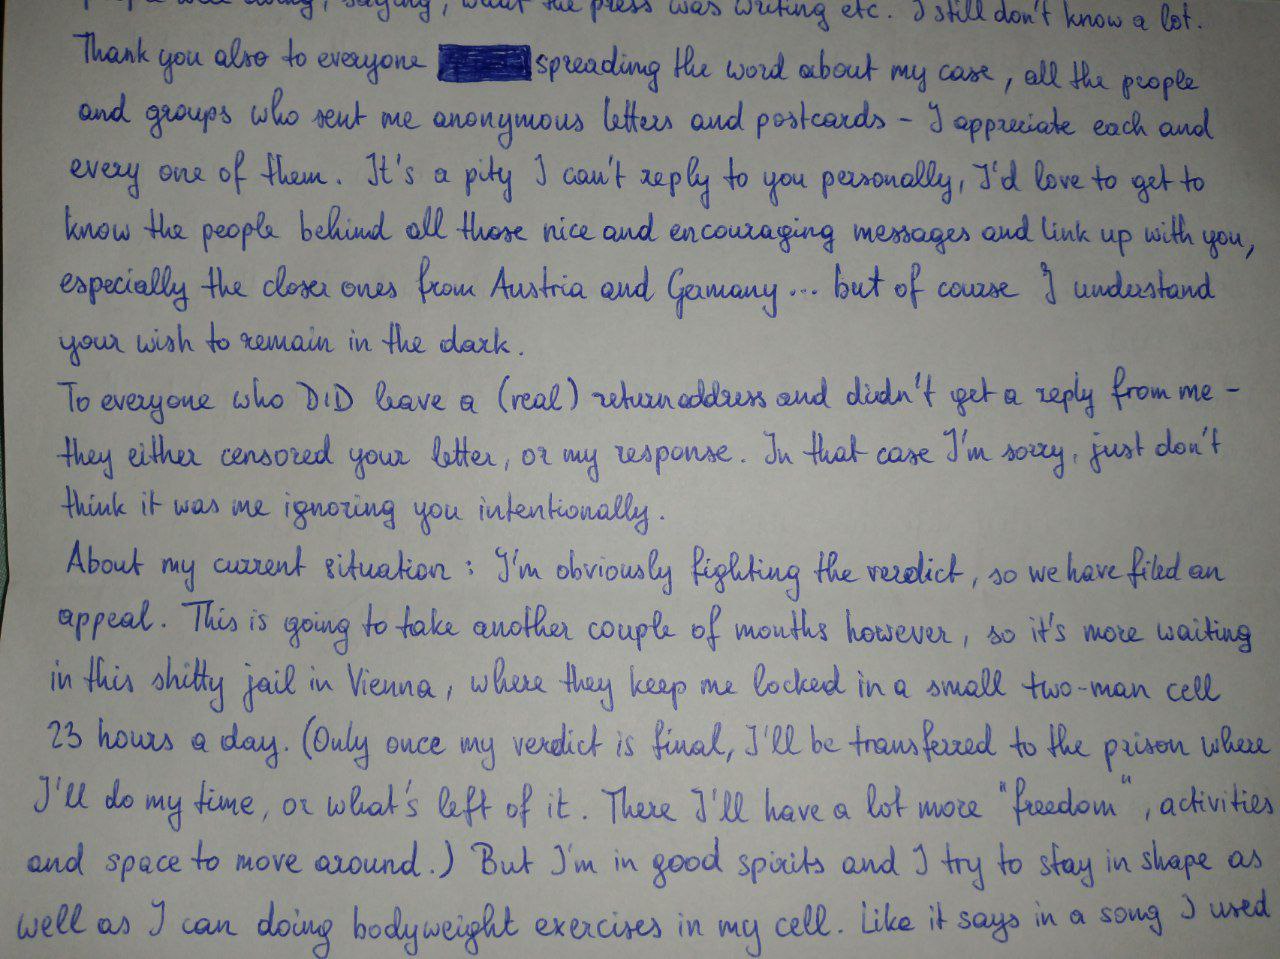 people were doing, saying, what the press was writing etc. I still don't know a lot.
Thank you also to everyone spreading the word about my case, all the people
and groups who sent me anonymous letters and postcards – I appreciate each and
every one of them. It's a pity I can't reply to you personally, I'd love to get to
know the people behind all those nice and encouraging messages and link up with you,
especially the closer ones from Austria and Germany... but of course I understand
your wish to remain in the dark.
To everyone who DID leave a (real) return address and didn't get a reply from me –
they either censored your letter, or my response. In that case I'm sorry, just don't
think it was me ignoring you intentionally.
About my current situation: I'm obviously fighting the verdict, so we have filed an
appeal. This is going to take another couple of months however, so it's more waiting
in this shitty jail in Vienna, where they keep me locked in a small two-man cell
23 hours a day. (Only once my verdict is final, I'll be transferred to the prison where
I'll do my time, or what's left of it. There I'll have a lot more "freedom", activities
and space to move around.) But I'm in good spirits and I try to stay in shape as
well as I can doing bodyweight exercises in my cell. Like it says in a song I used